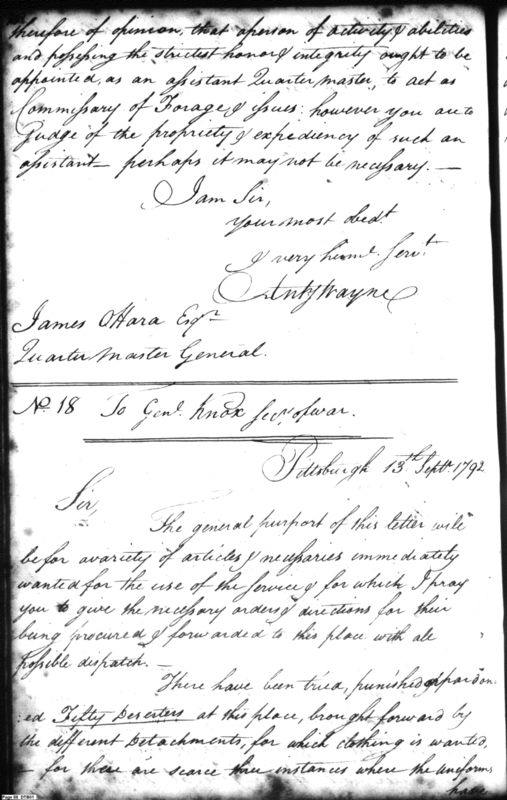 therefore of opinion, that a person of activity & abilities
and possessing the strictest honor & integrity ought to be
appointed, as an assistant Quarter Master, to act as
Commissary of Forage & issues: however you are to
Judge of the propriety & expediency of such an
assistant — perhaps it may not be necessary. —
I am Sir,
Your most obedt.
& very huml. Servt.
Anty Wayne
James OHara Esqr.
Quarter Master General.
No. 18 To Genl. Knox Secy. of war.
Pittsburgh 13th Septr. 1792
Sir,
The general purport of this letter will
be for a variety of articles & necessaries immediately
wanted for the use of the service & for which I pray
you to give the necessary orders & directions for their
being procured & forwarded to this place with all
possible dispatch. —
There have been tried, punished & pardon:
:ed Fifty Deserters at this place, brought forward by
the different Detachments, for which clothing is wanted,
— for there are scarce three instances where the Uniforms
have